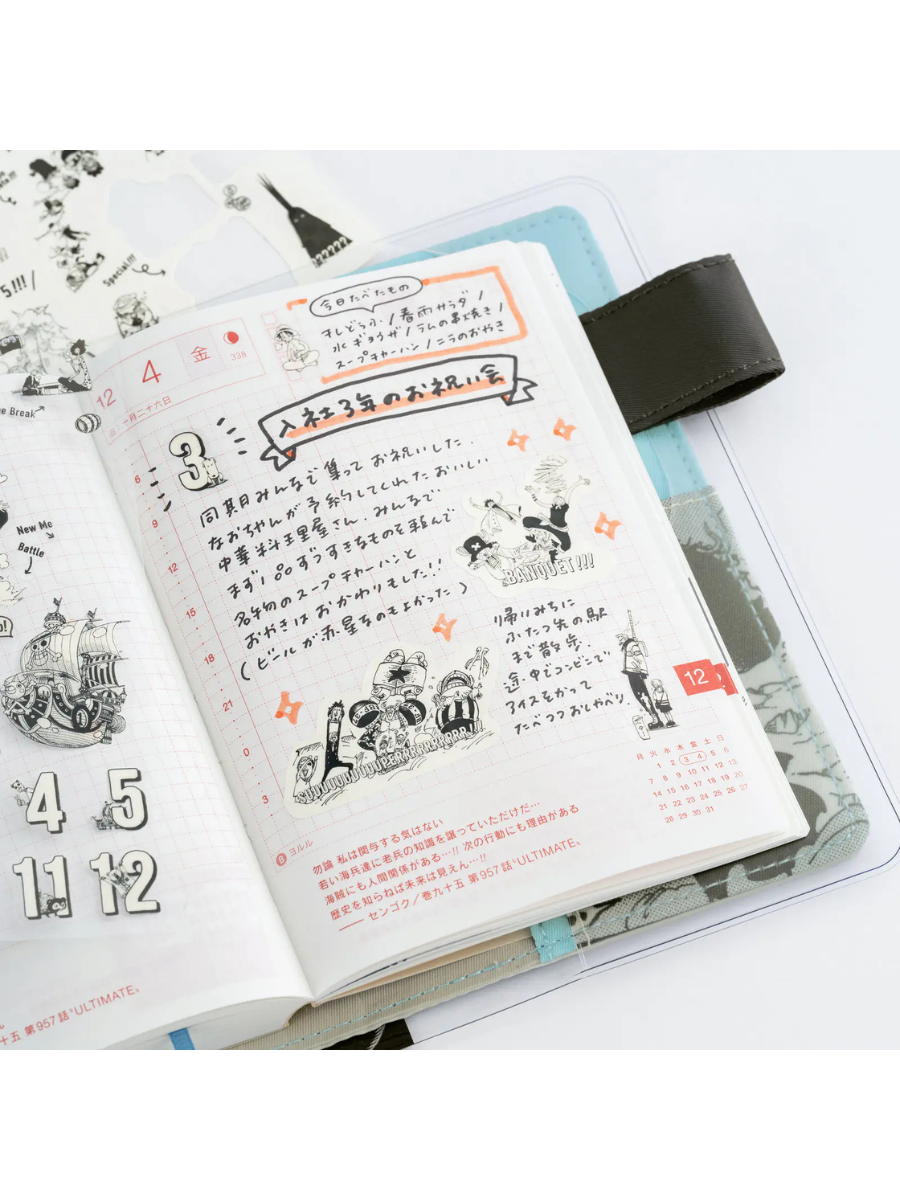 Special!!!
5!!!/
e Break
New Me
Battle
4
5
11
12
十五 第957話“ULTIMATE„
12
4
金
338
十月二十六日
今日たべたもの
オレどうふ/春雨サラダ/
水ギョウザ/ラムの串焼き/
スープチャーハン/ニラのおやき
入社3年のお祝い会
3
同期みんなで集ってお祝いした.
なおちゃんが予約してくれたおいしい
中華料理屋さん. みんなで
まず1品ずつすきなものを頼んで
名物のスープチャーハンと
おやきはおかわりもした!!
(ビールが赤星なのもよかった)
BANQUET!!!
帰りみちに
ふたつ先の駅
まで散歩.
途中でコンビニで
アイスをかって
たべつつおしゃべり.
SUUUUUUUUUPERRRRRRRRR!!!
6
9
12
15
18
21
0
3
12
月 火 水 木 金 土 日
1 2 3 4 5 6
7 8 9 10 11 12 13
14 15 16 17 18 19 20
21 22 23 24 25 26 27
28 29 30 31
ヨルル
勿論 私は関与する気はない
若い海兵達に老兵の知識を譲っていただけだ…
海賊にも人間関係がある…!! 次の行動にも理由がある
歴史を知らねば未来は見えん…!!
センゴク/巻九十五 第957話“ULTIMATE„